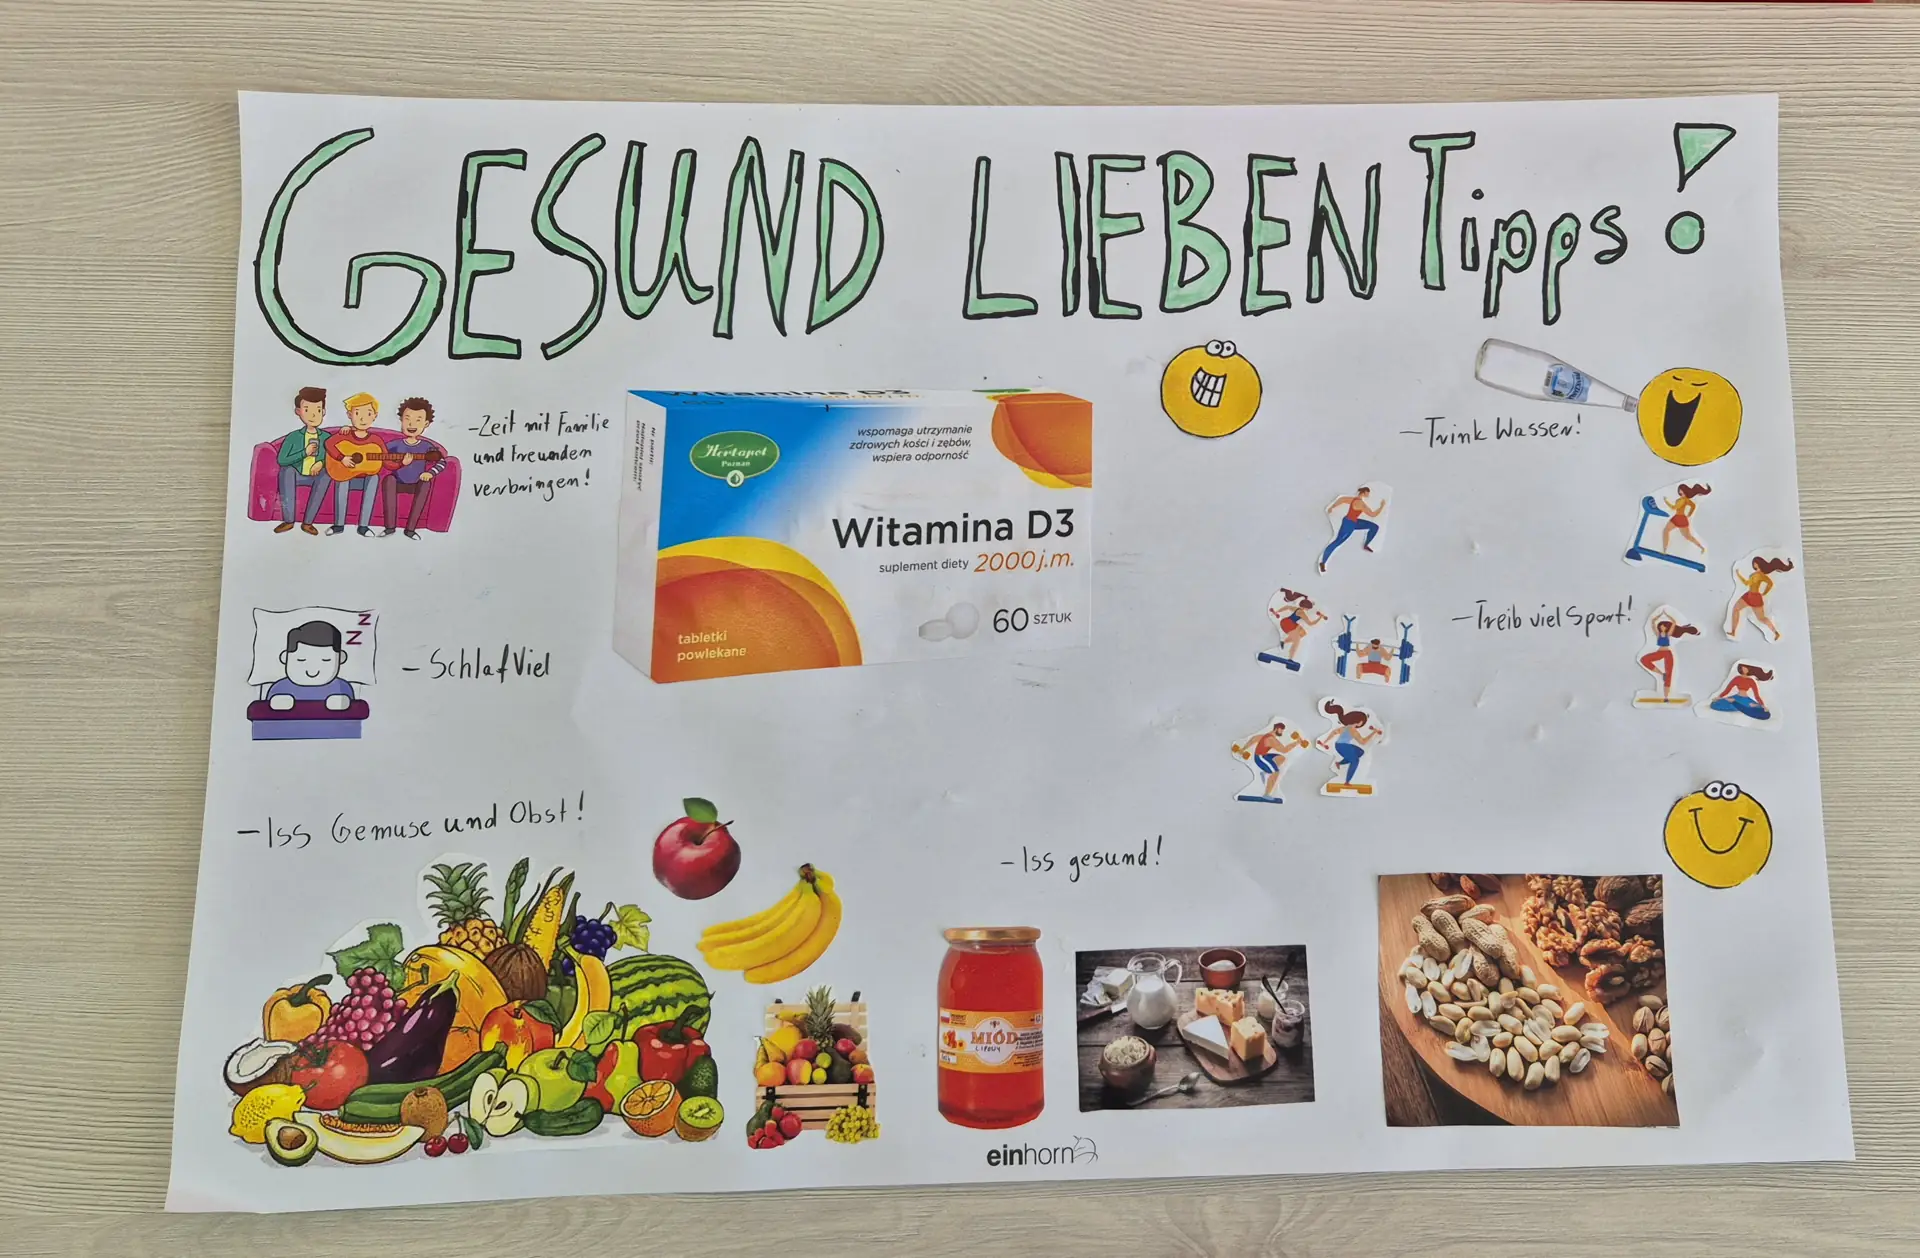 GESUND LIEBEN Tipps!
-Zeit mit Familie
und Freunden
verbringen!
Witamina D3
Herbapol
Poznań
wspomaga utrzymanie
zdrowych kości i zębów,
wspiera odporność
Witamina D3
suplement diety 2000 j.m.
60 SZTUK
tabletki
powlekane
-Trink Wasser!
-Treib viel Sport!
z
z
N
-Schlaf Viel
-Iss Gemuse und Obst!
-Iss gesund!
MIÓD
LIPOWY
einhorn